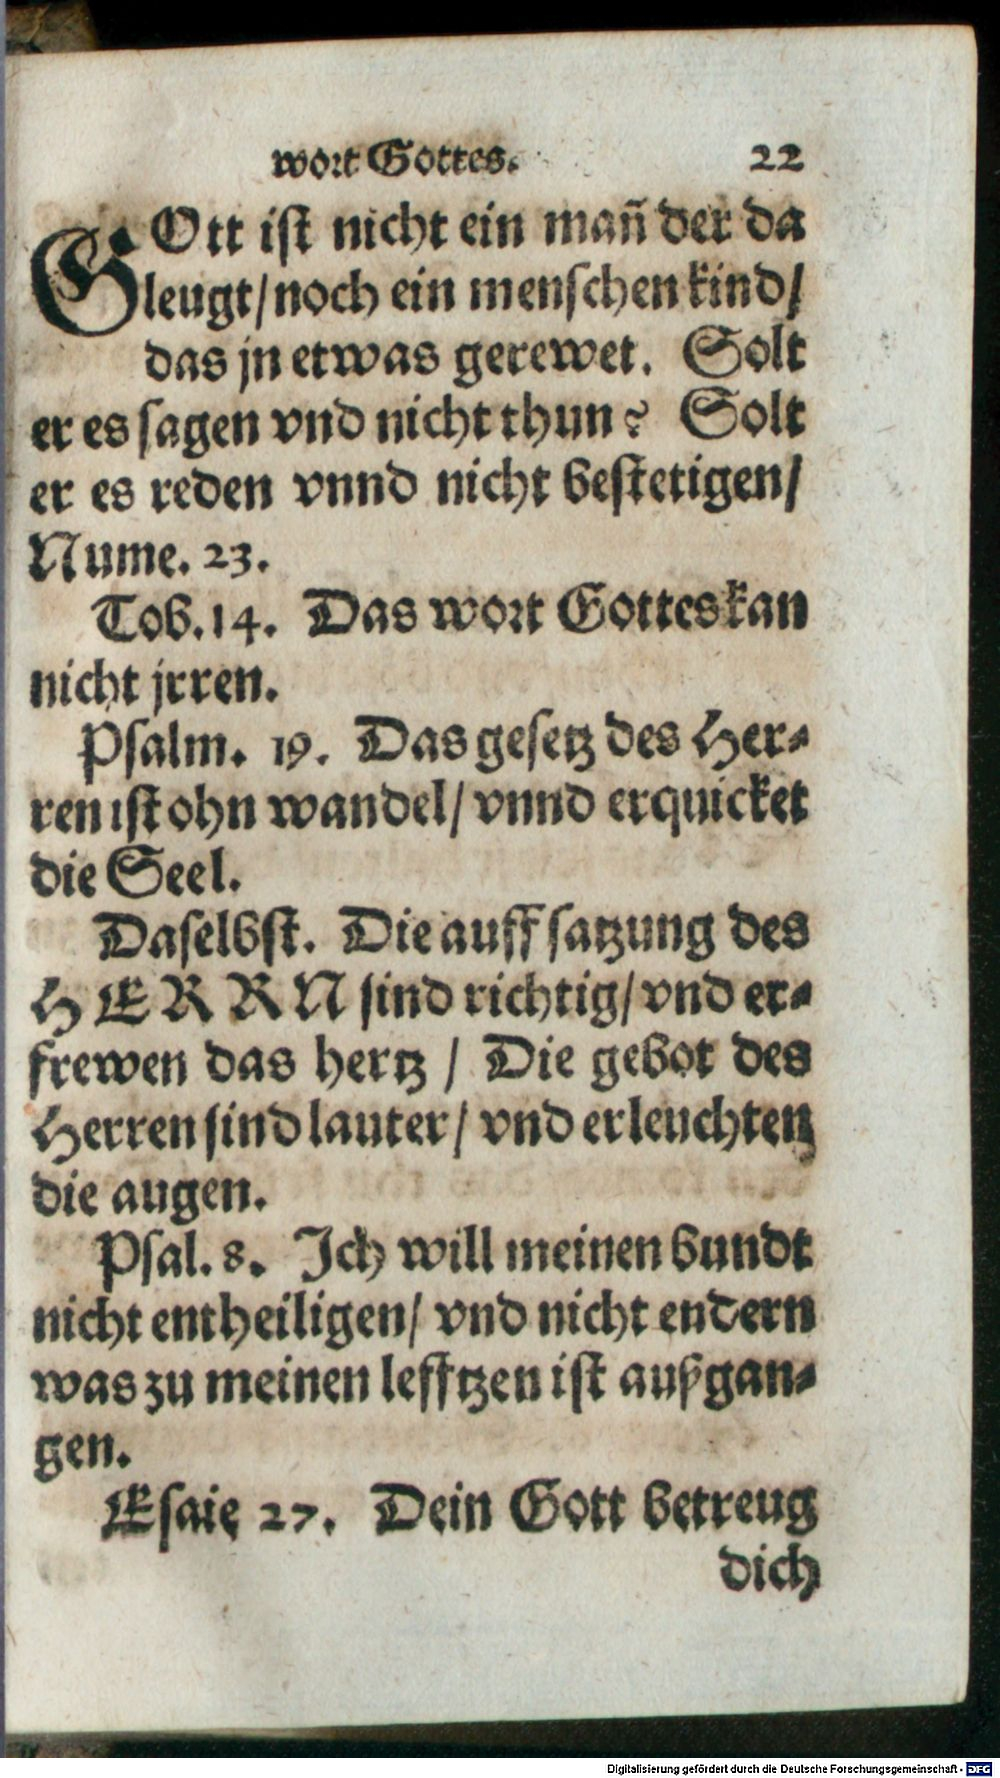 wort Gottes. 22
GOtt ist nicht ein mañ der da
leugt/noch ein menschen kind/
das jn etwas gerewet. Solt
er es sagen vnd nicht thun? Solt
er es reden vnnd nicht bestetigen/
Nume. 23.
Tob. 14. Das wort Gottes kan
nicht jrren.
Psalm. 19. Das gesetz des Her⸗
ren ist ohn wandel/ vnnd erquicket
die Seel.
Daselbst. Die auffsatzung des
HERRN sind richtig/ vnd er⸗
frewen das hertz / Die gebot des
Herren sind lauter/ vnd erleuchten
die augen.
Psal. 8. Ich will meinen bundt
nicht entheiligen/ vnd nicht endern
was zu meinen lefftzen ist außgan⸗
gen.
Esaie 27. Dein Gott betreug
dich
Digitalisierung gefördert durch die Deutsche Forschungsgemeinschaft - DFG